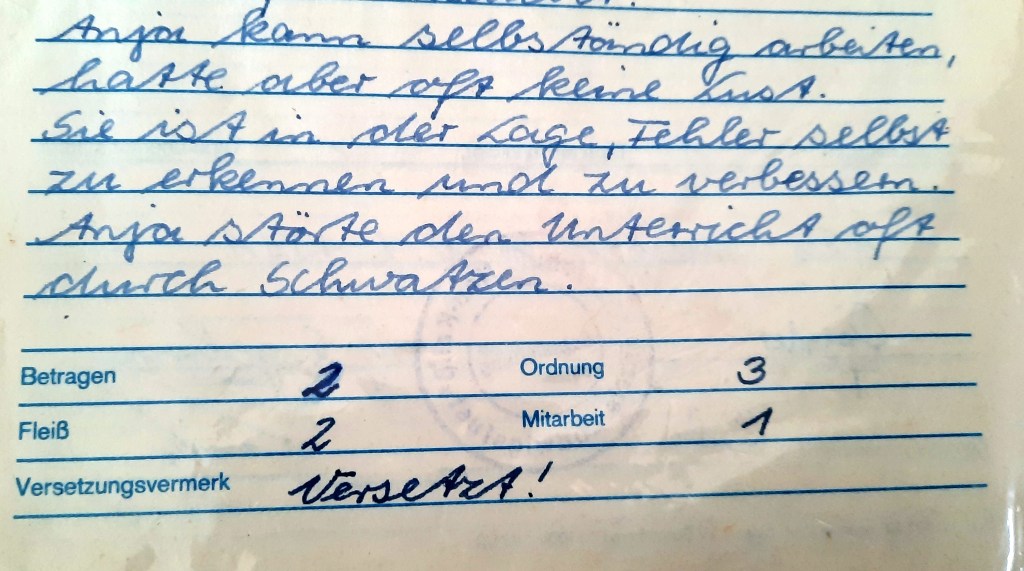 Anja kann selbständig arbeiten,
hatte aber oft keine Lust.
Sie ist in der Lage, Fehler selbst
zu erkennen und zu verbessern.
Anja störte den Unterricht oft
durch Schwatzen.
Betragen 2 Ordnung 3
Fleiß 2 Mitarbeit 1
Versetzungsvermerk Versetzt!